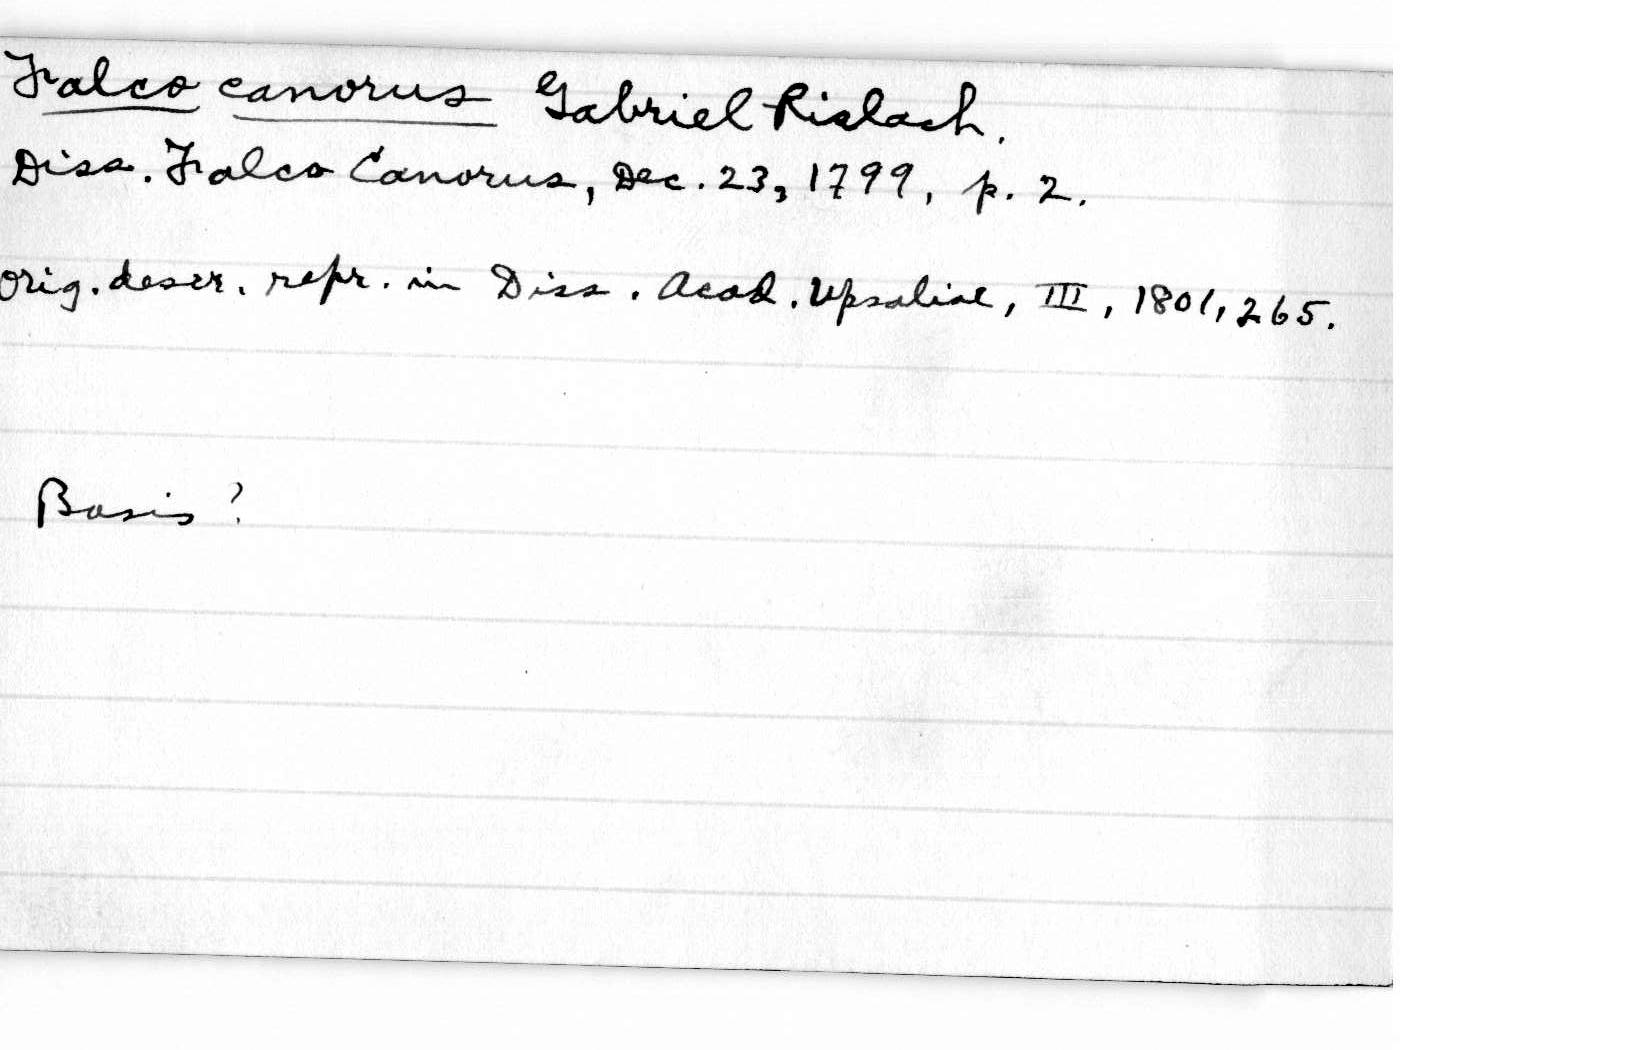 Falco canorus Gabriel Rislach.
Diss. Falco Canorus, Dec. 23, 1799, p. 2.
Orig. descr. repr. in Diss. Acad. Upsaliae, III, 1801, 265.
Basis?